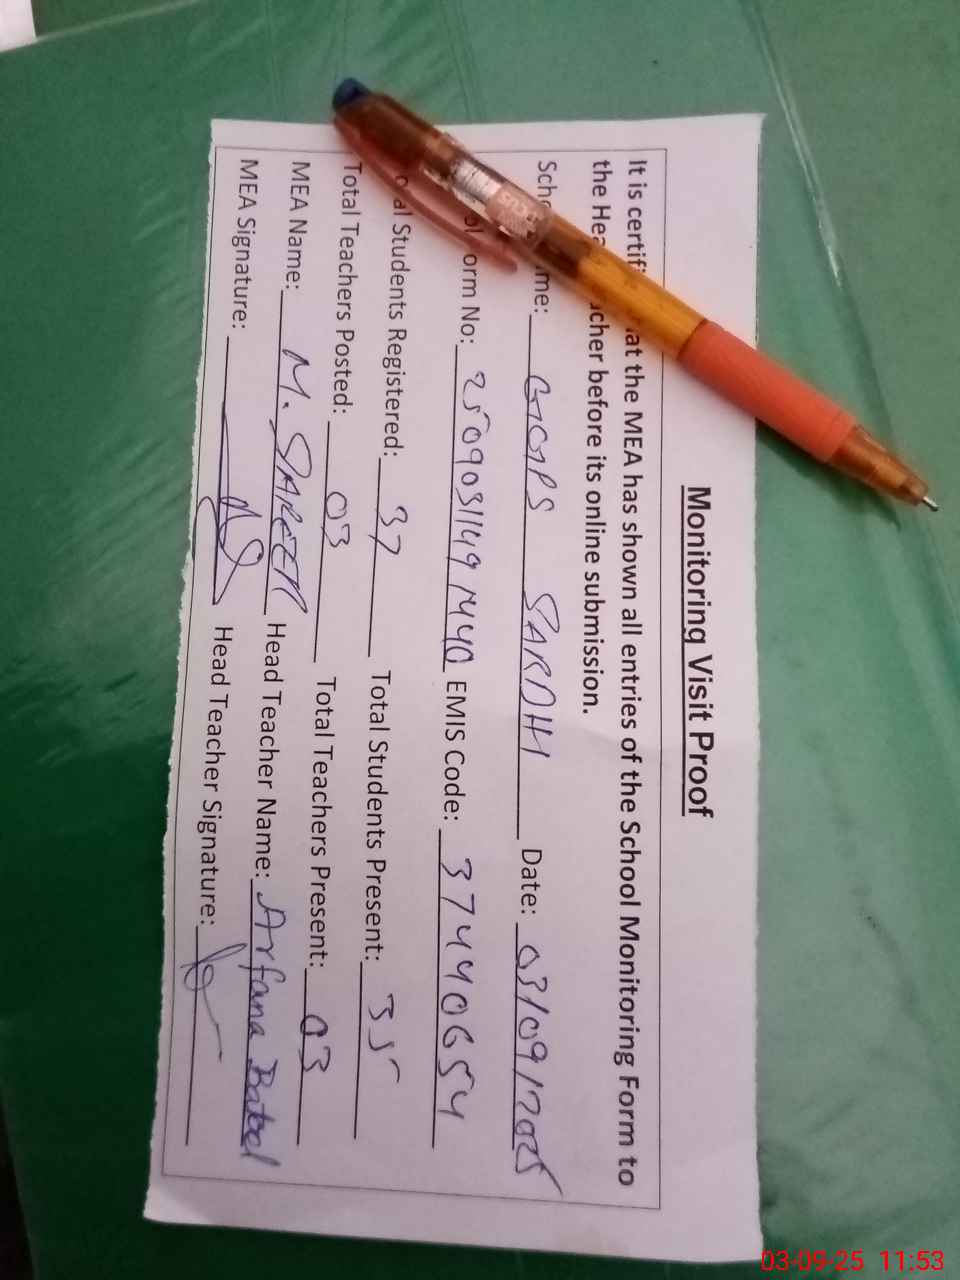 Monitoring Visit Proof
It is certif at the MEA has shown all entries of the School Monitoring Form to
the Hea cher before its online submission.
Scho me: GGPS SARDHI Date: 03/09/2025
ol orm No: EMIS Code: 37440654
al Students Registered: 37 Total Students Present: 35
Total Teachers Posted: 03 Total Teachers Present: 03
MEA Name: M. Head Teacher Name: Arfana Batool
MEA Signature: Head Teacher Signature:
03-09-25 11:53